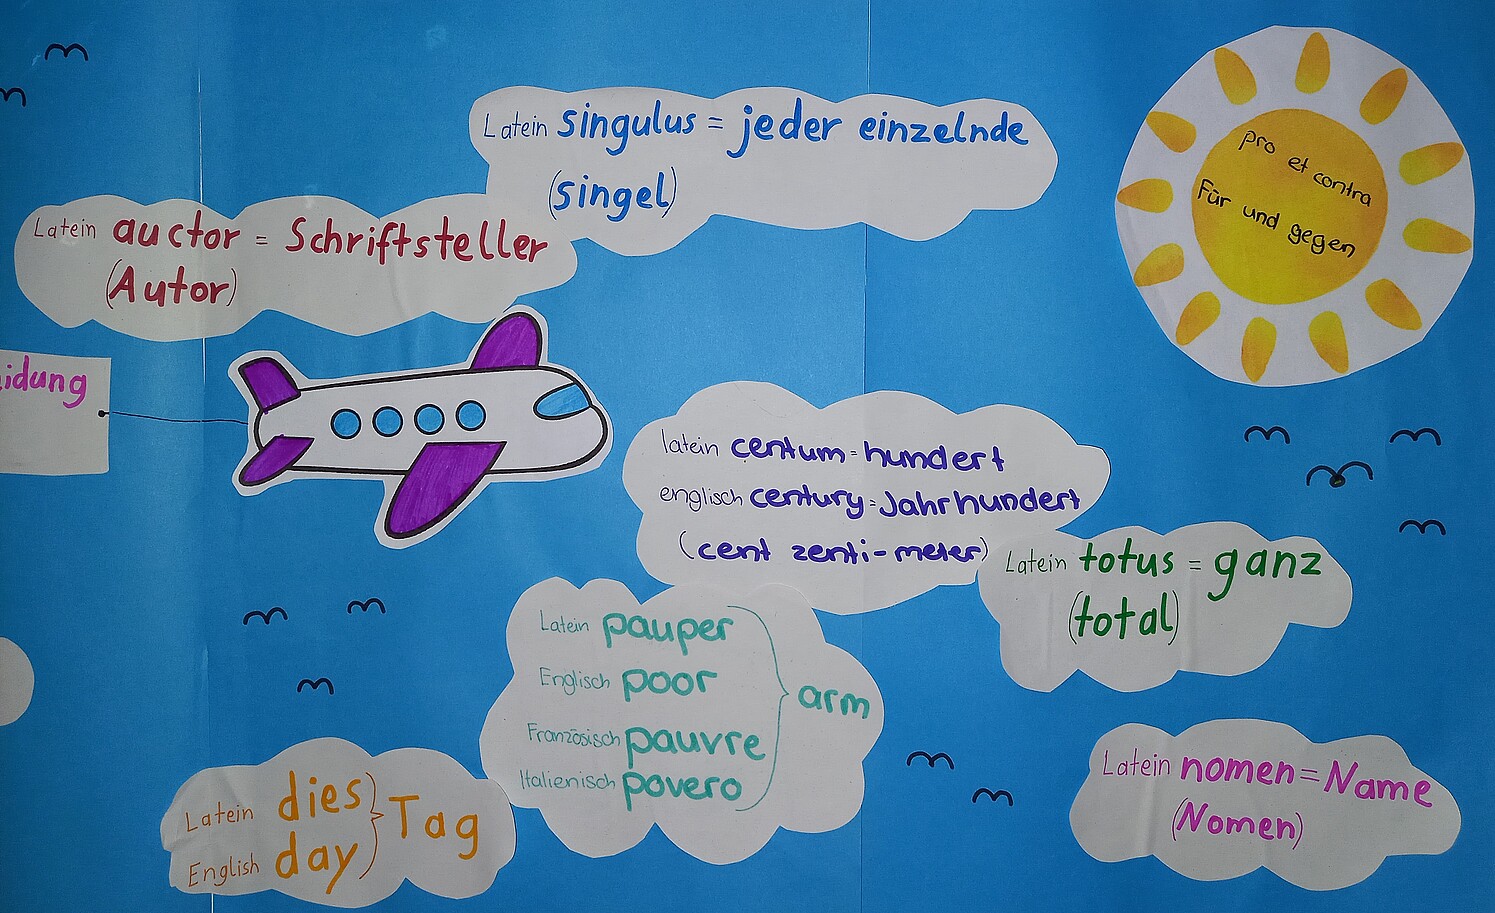 Latein singulus = jeder einzelnde
(singel)
pro et contra
Für und gegen
Latein auctor = Schriftsteller
(Autor)
idung
latein centum = hundert
englisch century = Jahrhundert
(cent zenti-meter)
Latein totus = ganz
(total)
Latein pauper
Englisch poor
Französisch pauvre
Italienisch povero
arm
Latein nomen = Name
(Nomen)
Latein dies
English day
Tag